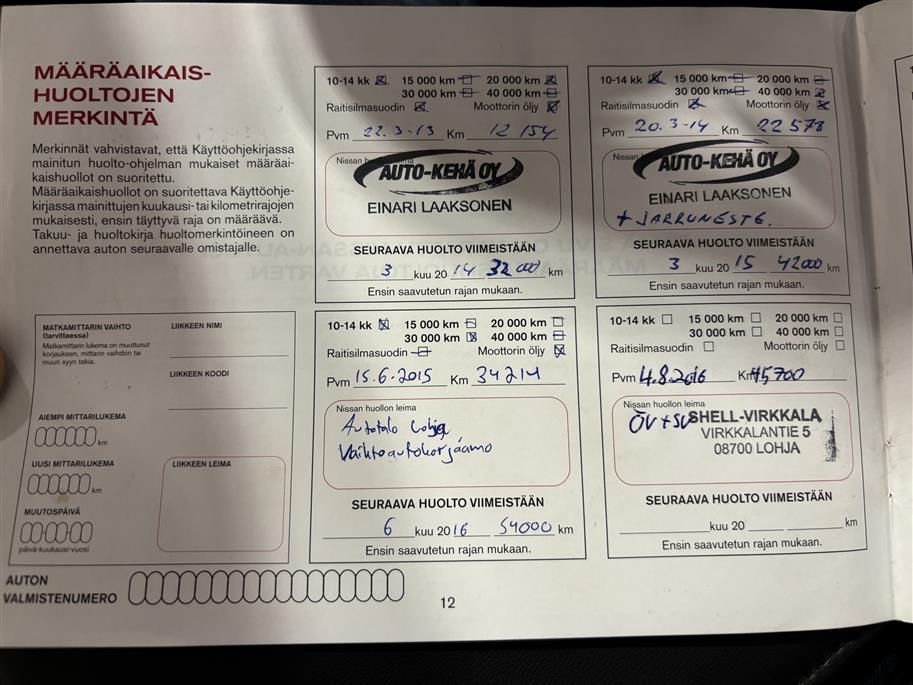 MÄÄRÄAIKAIS-
HUOLTOJEN
MERKINTÄ
Merkinnät vahvistavat, että Käyttöohjekirjassa
mainitun huolto-ohjelman mukaiset määräai-
kaishuollot on suoritettu.
Määräaikaishuollot on suoritettava Käyttöohje-
kirjassa mainittujen kuukausi- tai kilometrirajojen
mukaisesti, ensin täyttyvä raja on määräävä.
Takuu- ja huoltokirja huoltomerkintöineen on
annettava auton seuraavalle omistajalle.
10-14 kk 15 000 km 20 000 km
30 000 km 40 000 km
Raitisilmasuodin Moottorin öljy
Pvm 22.3-13 Km 12 154
Nissan huollon leima
AUTO-KEHÄ OY
EINARI LAAKSONEN
SEURAAVA HUOLTO VIIMEISTÄÄN
3 kuu 20 14 32000 km
Ensin saavutetun rajan mukaan.
10-14 kk 15 000 km 20 000 km
30 000 km 40 000 km
Raitisilmasuodin Moottorin öljy
Pvm 20.3-14 Km 22 578
Nissan
AUTO-KEHÄ OY
EINARI LAAKSONEN
+ JARRUNESTE.
SEURAAVA HUOLTO VIIMEISTÄÄN
3 kuu 20 15 42000 km
Ensin saavutetun rajan mukaan.
MATKAMITTARIN VAIHTO
(tarvittaessa)
Matkamittarin lukema on muuttunut
korjauksen, mittarin vaihdon tai
muun syyn takia.
AIEMPI MITTARILUKEMA
km
UUSI MITTARILUKEMA
km
MUUTOSPÄIVÄ
päivä-kuukausi-vuosi
LIIKKEEN NIMI
LIIKKEEN KOODI
LIIKKEEN LEIMA
10-14 kk 15 000 km 20 000 km
30 000 km 40 000 km
Raitisilmasuodin Moottorin öljy
Pvm 15.6.2015 Km 34214
Nissan huollon leima
Autotalo Lohja
Vaihtoautokorjaamo
SEURAAVA HUOLTO VIIMEISTÄÄN
6 kuu 20 16 54000 km
Ensin saavutetun rajan mukaan.
10-14 kk 15 000 km 20 000 km
30 000 km 40 000 km
Raitisilmasuodin Moottorin öljy
Pvm 4.8.2016 Km 45700
Nissan huollon leima
ÖV+SV SHELL-VIRKKALA
VIRKKALANTIE 5
08700 LOHJA
SEURAAVA HUOLTO VIIMEISTÄÄN
kuu 20 km
Ensin saavutetun rajan mukaan.
AUTON
VALMISTENUMERO
12